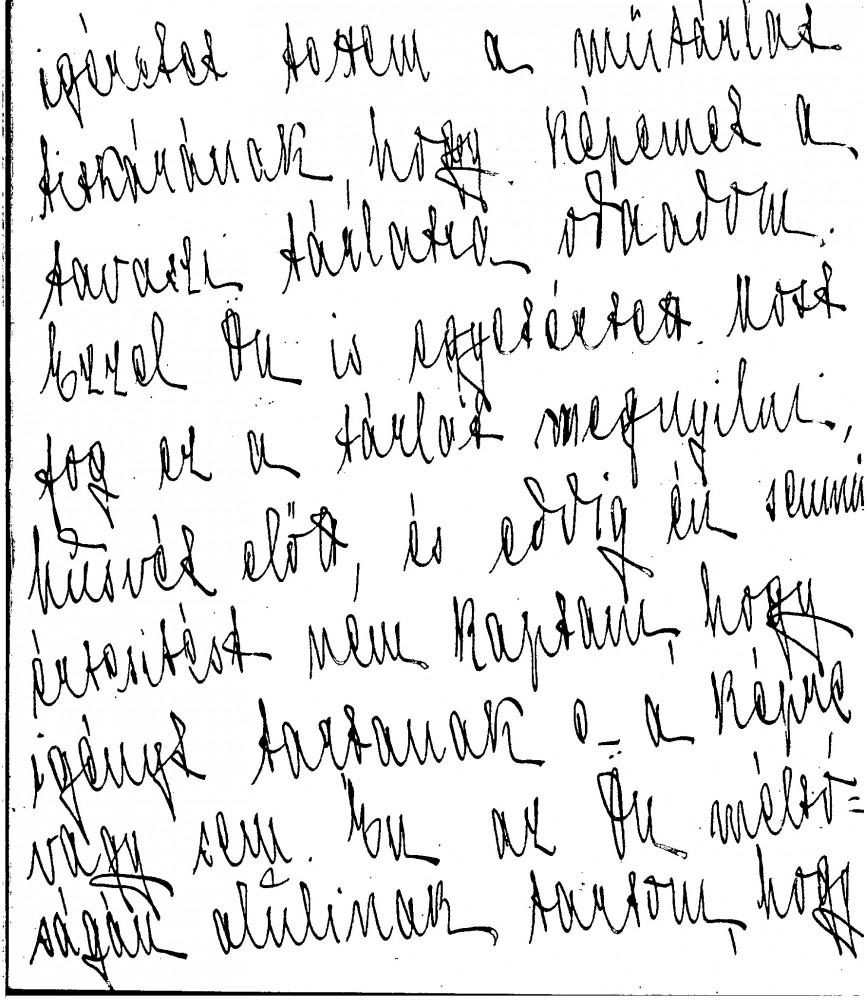 igéretet tettem a műtárlat
titkárának, hogy képemet a
tavaszi tárlatra odaadom.
Ezzel Ön is egyetértett. Most
fog ez a tárlat megnyilni,
húsvét előtt, és eddig én semmi
értesitést nem kaptam, hogy
igényt tartanak e - a képre
vagy sem. Én az Ön méltó=
ságán alulinak tartom, hogy